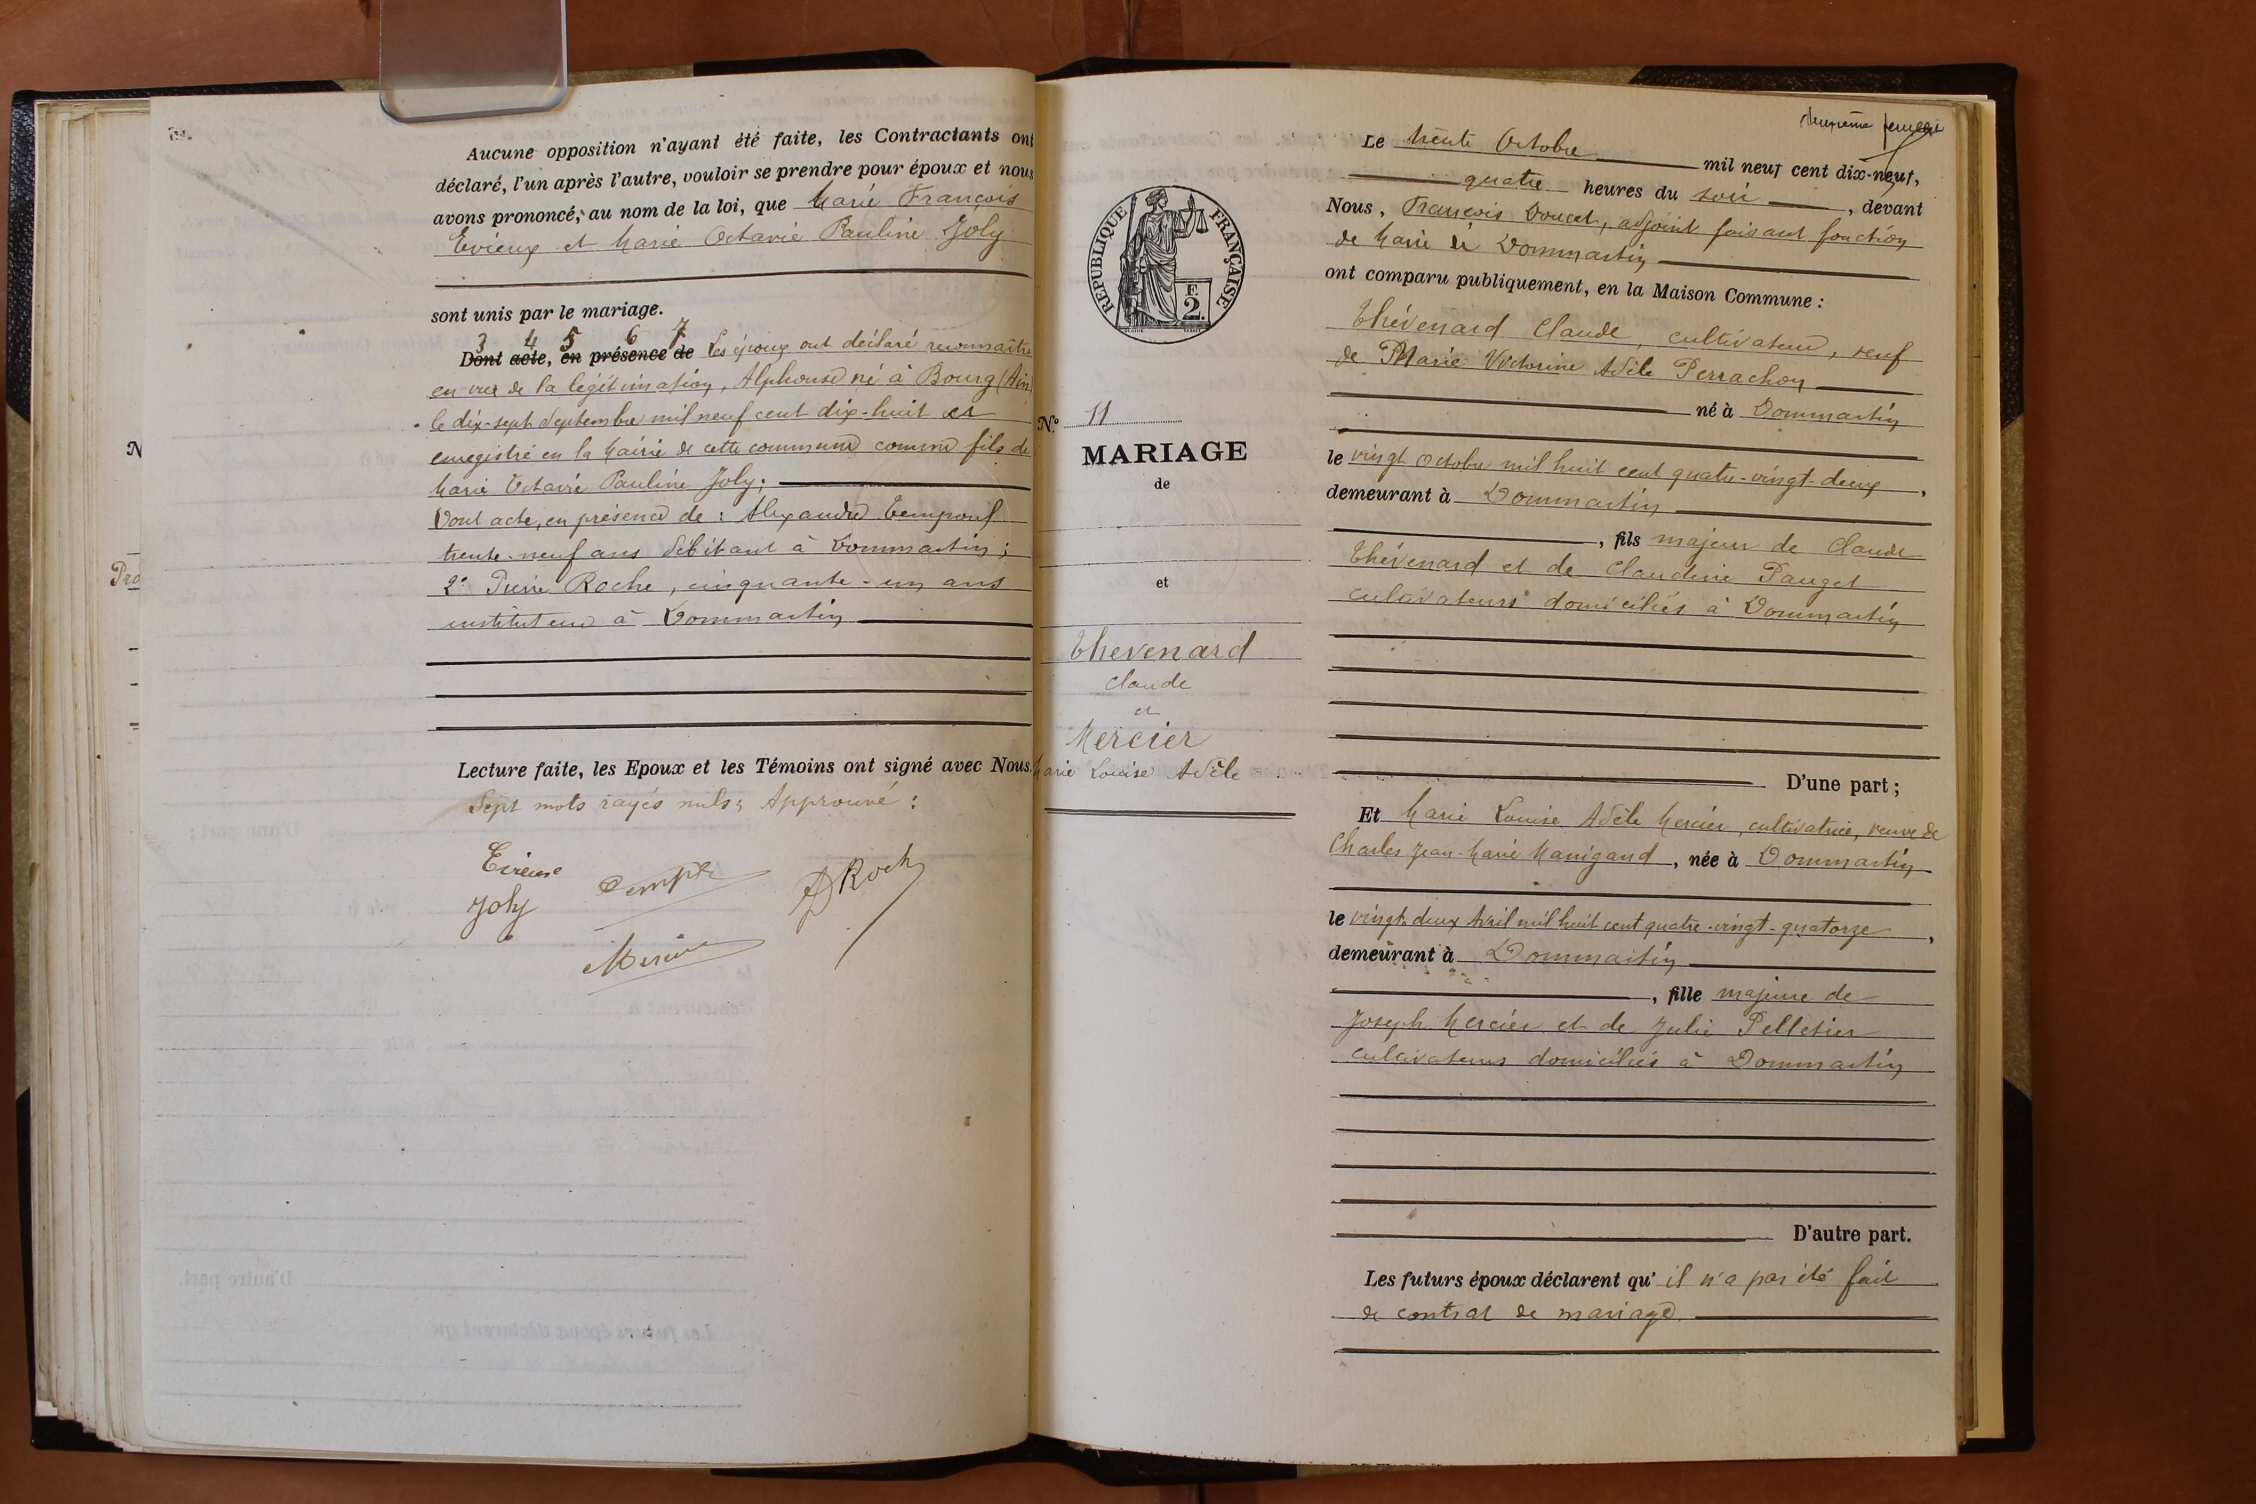 Aucune opposition n'ayant été faite, les Contractants ont
déclaré, l'un après l'autre, vouloir se prendre pour époux et nous
avons prononcé, au nom de la loi, que Marie François
Evieux et Marie Octavie Pauline Joly
sont unis par le mariage.
3 4 5 6 7
Dont acte, en présence de Les époux ont déclaré reconnaître
en vue de la légitimation, Alphonse né à Bourg (Ain)
le dix-sept Septembre mil neuf cent dix-huit et
enregistré en la Mairie de cette commune comme fils de
Marie Octavie Pauline Joly;
Dont acte, en présence de : Alexandre
trente-neuf ans débitant à Dommartin;
2° Pierre Roche, cinquante-un ans
instituteur à Dommartin
Lecture faite, les Epoux et les Témoins ont signé avec Nous.
Sept mots rayés nuls; Approuvé :
Evieux
Joly
PRoche
Mercier
REPUBLIQUE FRANÇAISE
F.
2.
N° 11
MARIAGE
de
et
Thevenard
Claude
et
Mercier
Marie Louise Adèle
deuxième feuillet
Le trente Octobre mil neuf cent dix-neuf,
quatre heures du soir, devant
Nous, François Doucet, adjoint faisant fonction
de Maire de Dommartin
ont comparu publiquement, en la Maison Commune :
Thévenard Claude, cultivateur, veuf
de Marie Victorine Adèle Perrachon
né à Dommartin
le vingt Octobre mil huit cent quatre-vingt-deux,
demeurant à Dommartin
, fils majeur de Claude
Thévenard et de Claudine Pauget
cultivateurs domiciliés à Dommartin
D'une part ;
Et Marie Louise Adèle Mercier, cultivatrice, veuve de
Charles Jean-Marie Manigand, née à Dommartin
le vingt-deux Avril mil huit cent quatre-vingt-quatorze,
demeurant à Dommartin
, fille majeure de
Joseph Mercier et de Julie Pelletier
cultivateurs domiciliés à Dommartin
D'autre part.
Les futurs époux déclarent qu'il n'a pas été fait
de contrat de mariage.